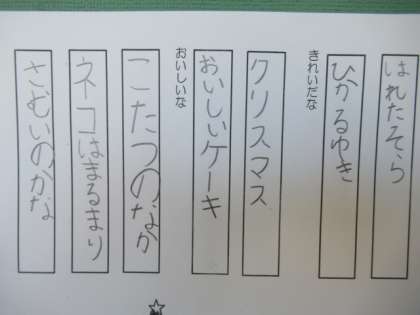 はれたそら
ひかるゆき
きれいだな
クリスマス
おいしいケーキ
おいしいな
こたつのなか
ネコはまるまり
さむいのかな